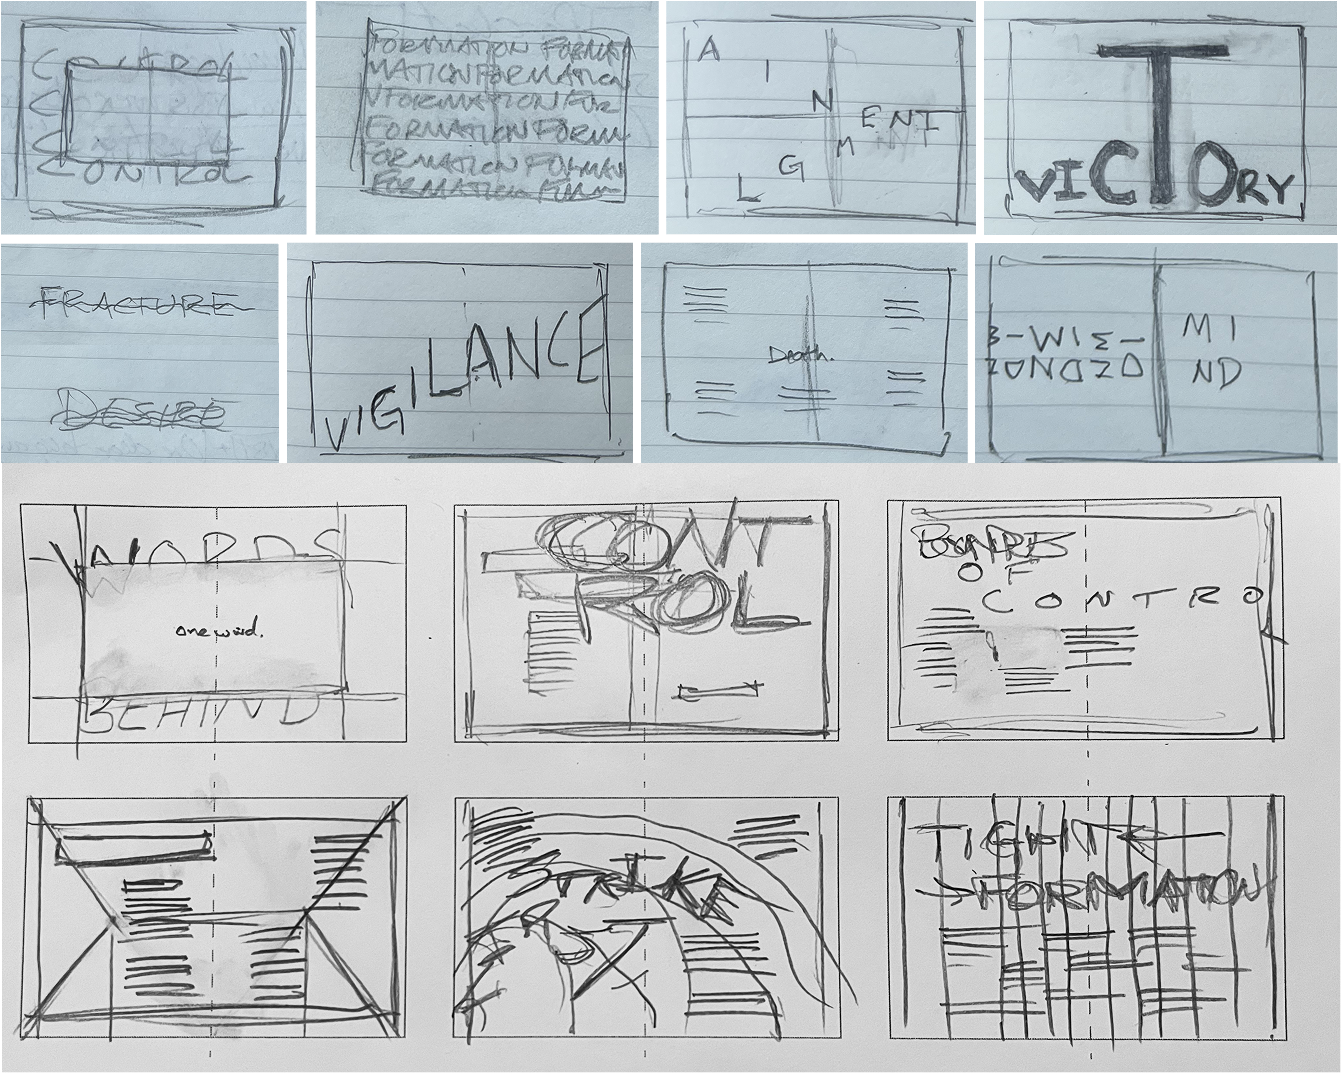 CONTROL
C
C
CONTROL
FORMATION FORMAT
MATIONFORMATION
FORMATION FOR
FORMATION FORM
FORMATION FORMA
FORMATION FORM
A
L
I
G
N
M
ENT
VICTORY
FRACTURE
DESIRE
VIGILANCE
Death.
MI
ND
WORDS
one word.
BEHIND
CONT
ROL
OF
CONTRO
STRIKE
TIGHT
FORMATION